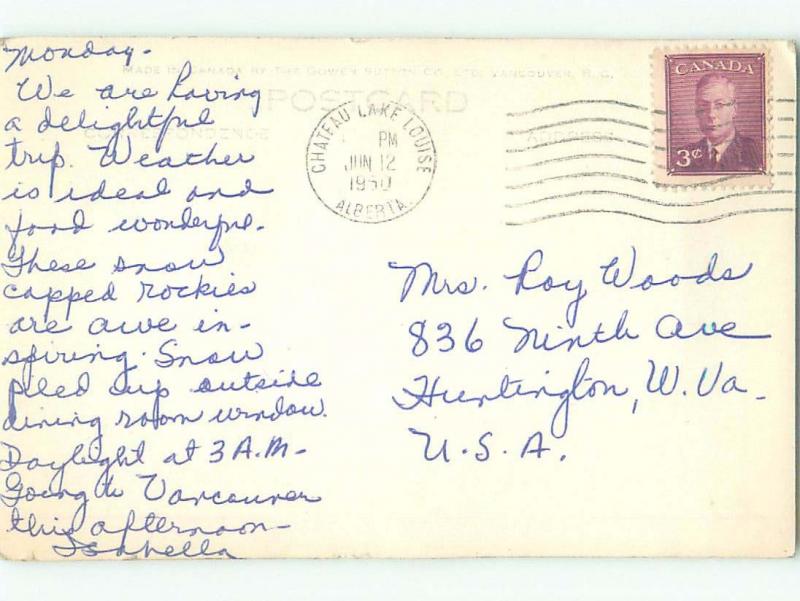 Monday-
MADE IN CANADA BY THE GOWEN SUTTON CO. LTD. VANCOUVER, B.C.
POSTCARD
CORRESPONDENCE
ADDRESS
We are having
a delightful
trip. Weather
is ideal and
food wonderful.
These snow
capped rockies
are awe in-
spiring. Snow
piled up outside
dining room window.
Daylight at 3 A.M-
Going to Vancouver
this afternoon-
Isabella
CHATEAU LAKE LOUISE
PM
JUN 12
1950
ALBERTA.
CANADA
3¢
Mrs. Roy Woods
836 Ninth Ave
Huntington, W. Va.
U.S.A.